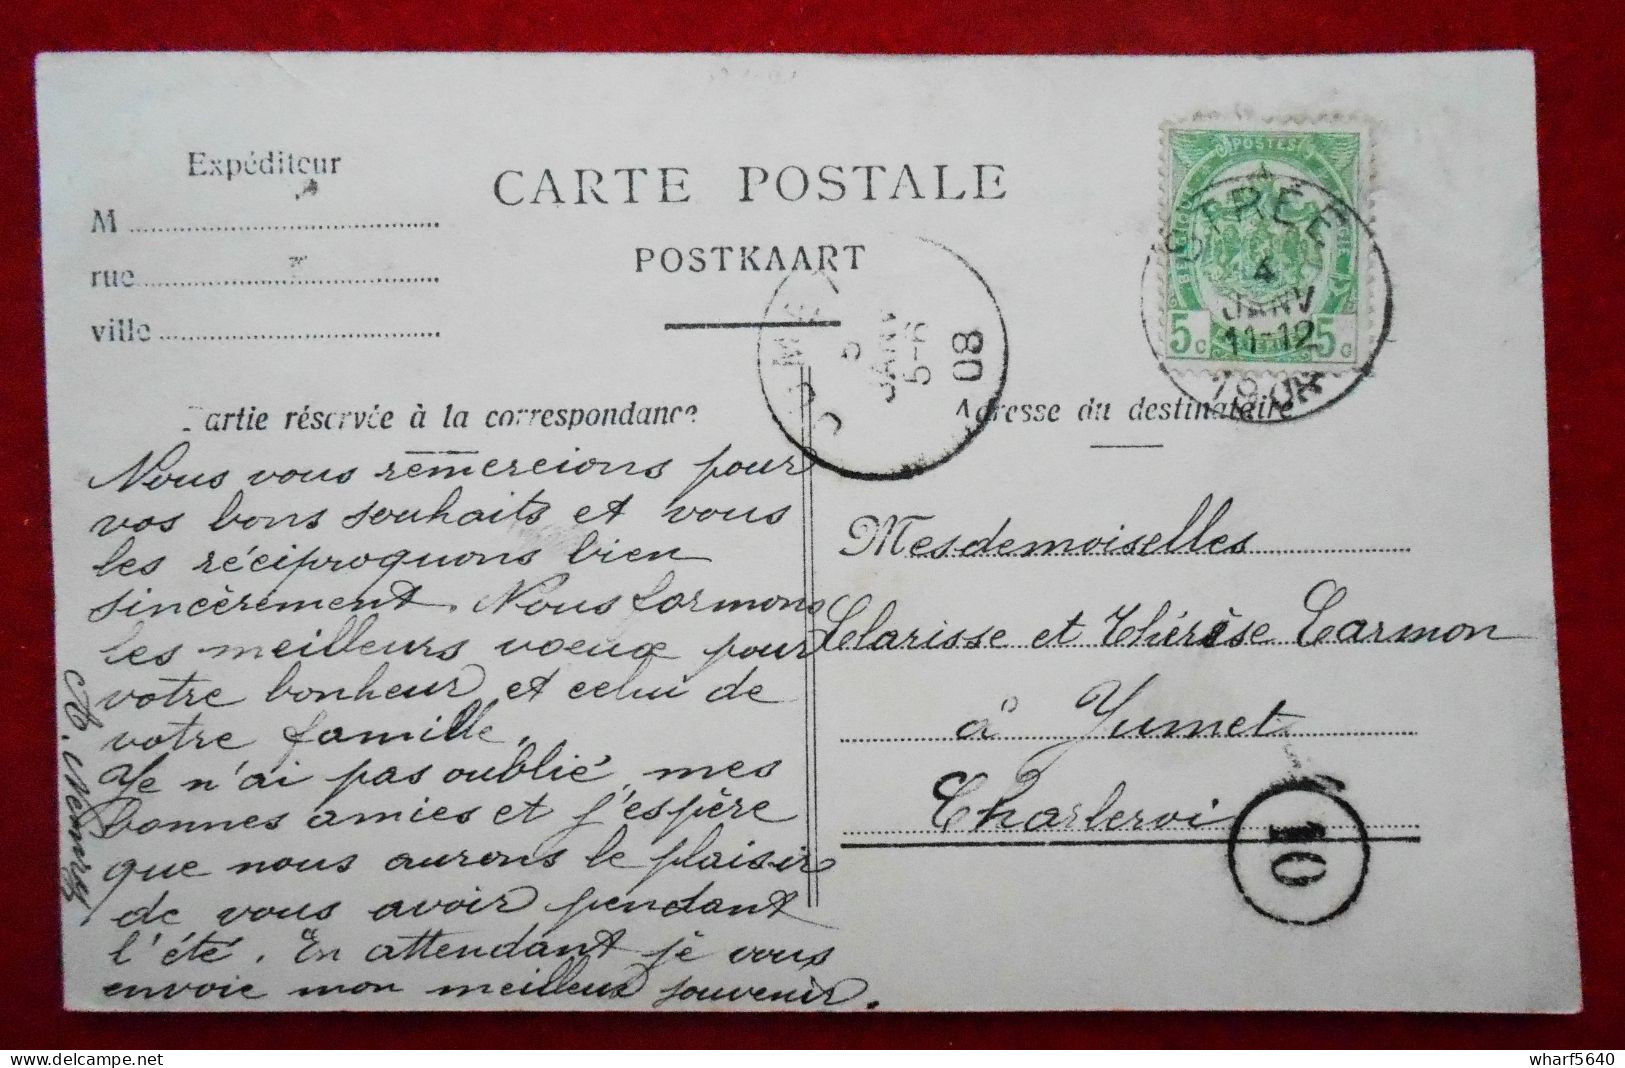 Expéditeur
M
rue
ville
CARTE POSTALE
POSTKAART
POSTES
5c 5c
STRÉE
4
JANV
11-12
1908
JUMET
5
JANV
5-6
08
Partie réservée à la correspondance
Nous vous remercions pour
vos bons souhaits et vous
les réciproquons bien
sincèrement. Nous formons
les meilleurs voeux pour
votre bonheur et celui de
votre famille.
Je n'ai pas oublié mes
bonnes amies et j'espère
que nous aurons le plaisir
de vous avoir pendant
l'été. En attendant je vous
envoie mon meilleur souvenir.
Adresse du destinataire
Mesdemoiselles
Clarisse et Thérèse Carmon
à Jumet
Charleroi
10
delcampe.net
wharf5640